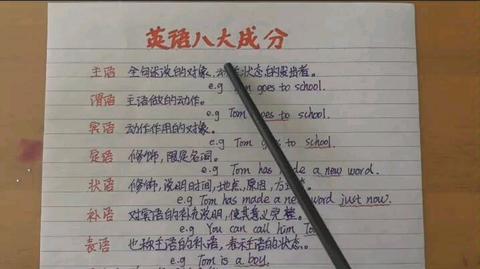 英语八大成分
主语 全句述说的对象,动作状态的发出者。
e.g Tom goes to school.
谓语 主语做的动作。
e.g Tom goes to school.
宾语 动作作用的对象。
e.g Tom goes to school.
定语 修饰,限定名词。
e.g Tom has made a new word.
状语 修饰,说明时间,地点,原因,方式
e.g Tom has made a new word just now.
补语 对宾语的补充说明,使其意义完整。
e.g You can call him
表语 也称主语的补语,表示主语的状态。
e.g Tom is a boy.